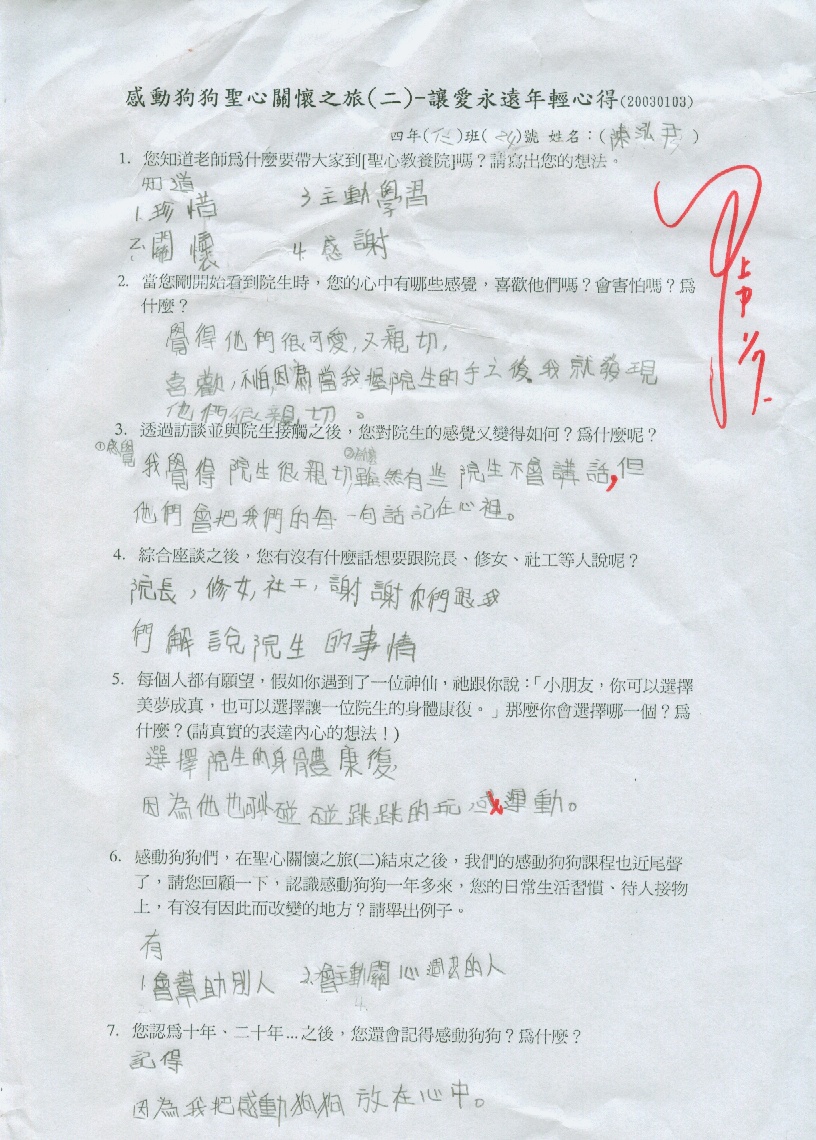 感動狗狗聖心關懷之旅(二)-讓愛永遠年輕心得(20030103)
四年(仁)班( )號 姓名:(陳泓 )
1. 您知道老師爲什麼要帶大家到[聖心教養院]嗎?請寫出您的想法。
知道
1.珍惜 3主動學習
2.關懷 4.感謝
2. 當您剛開始看到院生時,您的心中有哪些感覺,喜歡他們嗎?會害怕嗎?爲
什麼?
覺得他們很可愛,又親切,
喜歡,不怕因為當我握院生的手之後我就發現
他們很親切。
3. 透過訪談並與院生接觸之後,您對院生的感覺又變得如何?爲什麼呢?
①感覺
我覺得院生很親切雖然有些院生不會講話,但
他們會把我們的每一句話記在心裡。
4. 綜合座談之後,您有沒有什麼話想要跟院長、修女、社工等人說呢?
院長,修女,社工,謝謝你們跟我
們解說院生的事情
5. 每個人都有願望,假如你遇到了一位神仙,祂跟你說:「小朋友,你可以選擇
美夢成真,也可以選擇讓一位院生的身體康復。」那麼你會選擇哪一個?爲
什麼?(請真實的表達內心的想法!)
選擇院生的身體康復
因為他也可以碰碰跳跳的玩 運動。
6. 感動狗狗們,在聖心關懷之旅(二)結束之後,我們的感動狗狗課程也近尾聲
了,請您回顧一下,認識感動狗狗一年多來,您的日常生活習慣、待人接物
上,有沒有因此而改變的地方?請舉出例子。
有
1.會幫助別人 2.會主動關心週邊的人
7. 您認爲十年、二十年...之後,您還會記得感動狗狗?爲什麼?
記得
因為我把感動狗狗放在心中。